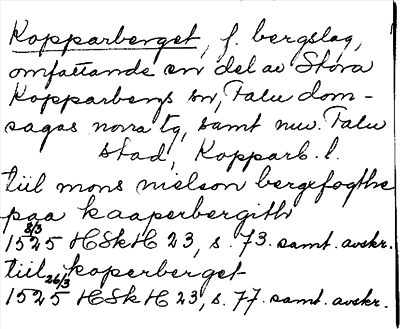 Kopparberget, f. bergslag,
omfattande en del av Stora
Kopparbergs sn, Falu dom-
sagas norra tg, samt nuv. Falu
stad, Kopparb. l.
tiil mons nielson bergxfogthe
paa kaaperbergith
1525 8/3 HSkH 23, s. 73. samt. avskr.
tiil koperberget
1525 26/3 HSkH 23, s. 77. samt. avskr.